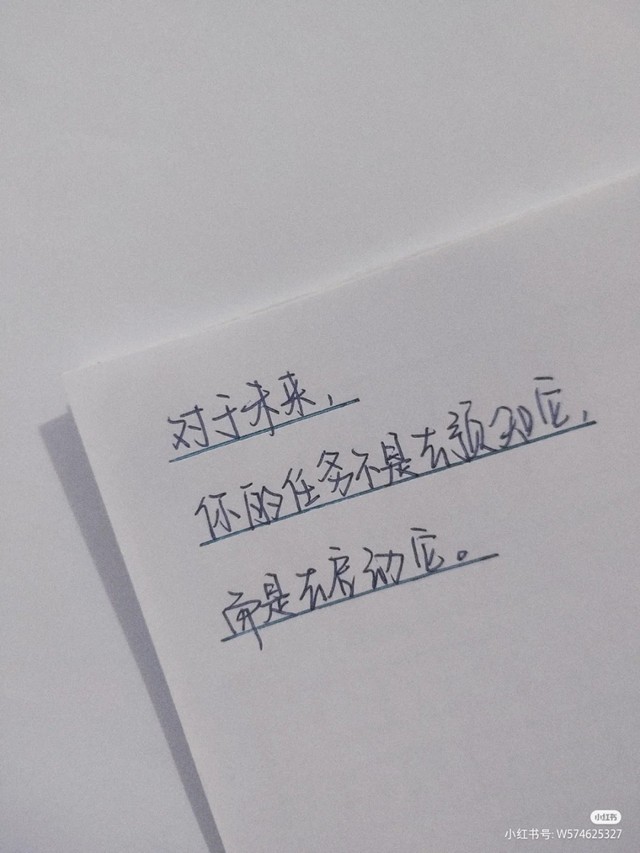 对于未来，
你的任务不是去预知它，
而是去启动它。
小红书
小红书号: W574625327